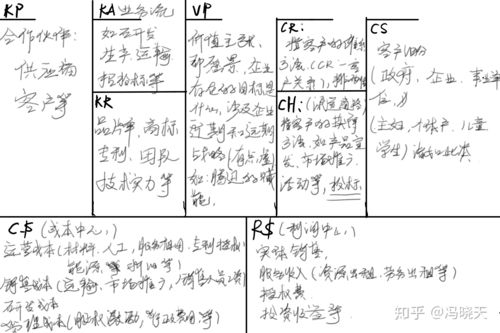 KP
合作伙伴:
供应商
客户等
KA业务流
如研发
生产运输
招投标等
KR
品牌、商标
专利、团队
技术实力等
VP
价值主张
即愿景,企业
存在的目标是
什么,涉及企业
近期和远期
战略(有点虚)
如:腾讯的赋
能。
CR:
指客户的维护
方法(CCR-客
户关系),
CH:(渠道通路
指客户的获得
方法,如产品宣
发、市场推广、
活动等,投标
CS
客户细分
(政府、企业、事业单
位,)
(主妇、个体户、儿童
学生)
C$(成本中心,)
运营成本(材料、人工,专利授权
能源等)
销售成本(运输、市场推广,销售人员
研发成本
管理成本(股权激励,行政费用等)
R$(利润中心,)
实际销售,
服务收入(资源出租、劳务出租等)
授权费
投资收益等.
知乎 @冯晓天